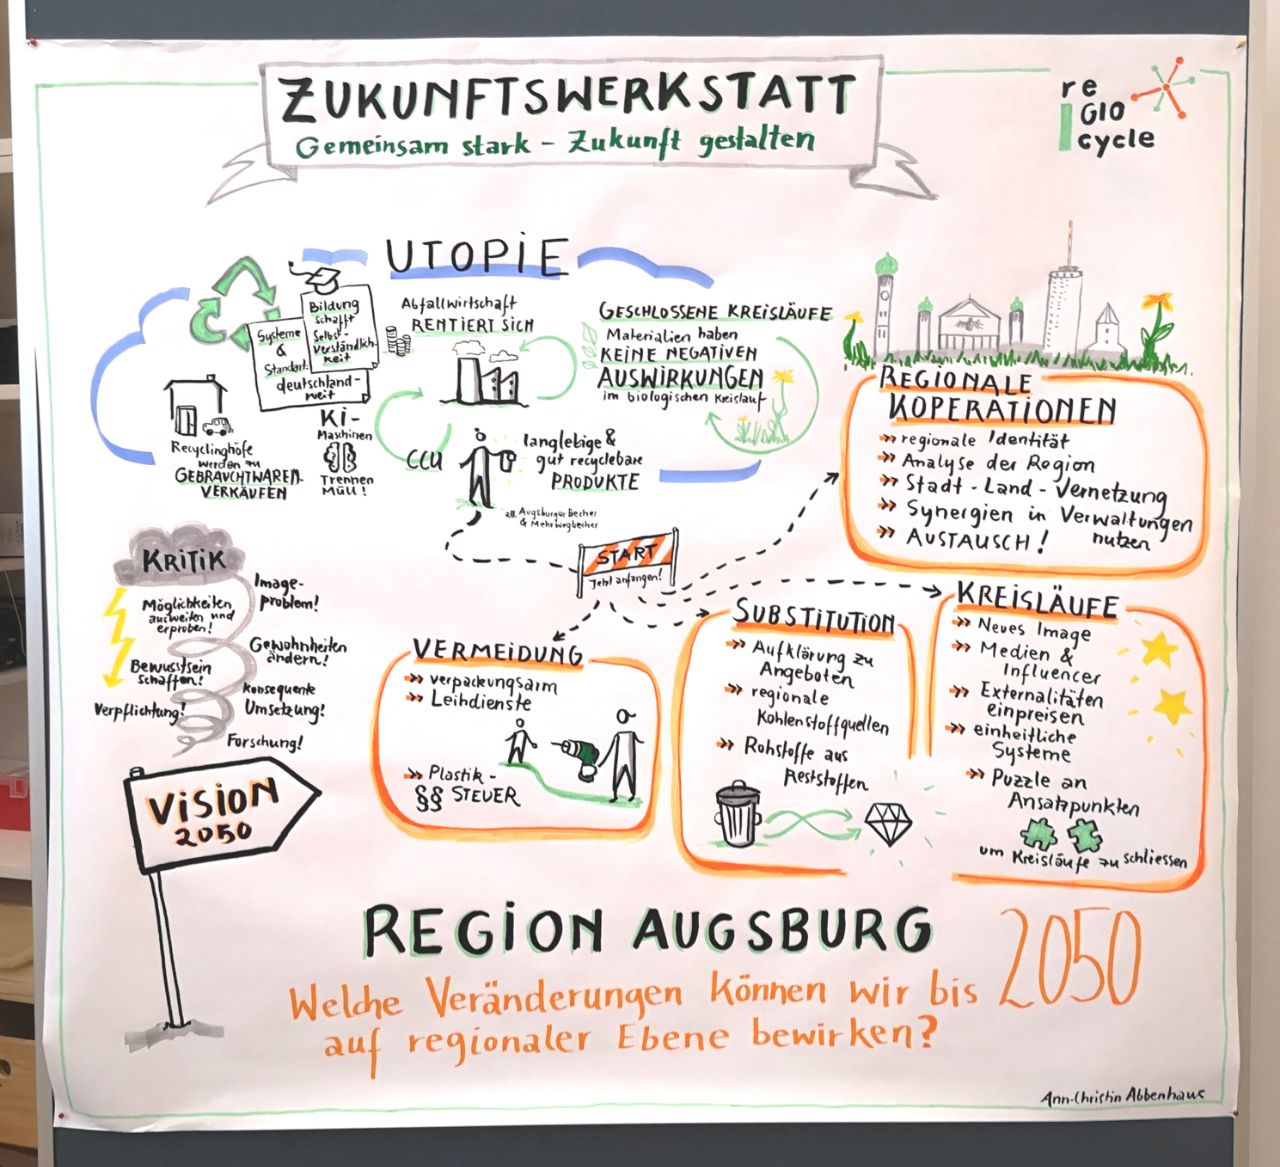 ZUKUNFTSWERKSTATT
Gemeinsam stark – Zukunft gestalten
re
GIO
cycle
UTOPIE
Systeme
&
Standart
deutschland-
weit
Bildung
schafft
Selbst-
verständlich-
keit
Abfallwirtschaft
RENTIERT SICH
GESCHLOSSENE KREISLÄUFE
Materialien haben
KEINE NEGATIVEN
AUSWIRKUNGEN
im biologischen Kreislauf
Recyclinghöfe
werden zu
GEBRAUCHTWAREN-
VERKÄUFEN
Ki-
Maschinen
Trennen
MÜLL!
CCU
langlebige &
gut recyclebare
PRODUKTE
z.B. Augsburger Becher
& Mehrwegbecher
START
Jetzt anfangen!
REGIONALE
KOPERATIONEN
regionale Identität
Analyse der Region
Stadt - Land - Vernetzung
Synergien in Verwaltungen
nutzen
AUSTAUSCH!
KRITIK
Möglichkeiten
ausweiten und
erproben!
Bewusstsein
schaffen!
Verpflichtung!
Image-
problem!
Gewohnheiten
ändern!
Konsequente
Umsetzung!
Forschung!
VERMEIDUNG
verpackungsarm
Leihdienste
Plastik-
§§ STEUER
SUBSTITUTION
Aufklärung zu
Angeboten
regionale
Kohlenstoffquellen
Rohstoffe aus
Reststoffen
KREISLÄUFE
Neues Image
Medien &
Influencer
Externalitäten
einpreisen
einheitliche
Systeme
Puzzle an
Ansatzpunkten
um Kreisläufe zu schliessen
VISION
2050
REGION AUGSBURG
Welche Veränderungen können wir bis 2050
auf regionaler Ebene bewirken?
Ann-Christin Abbenhaus